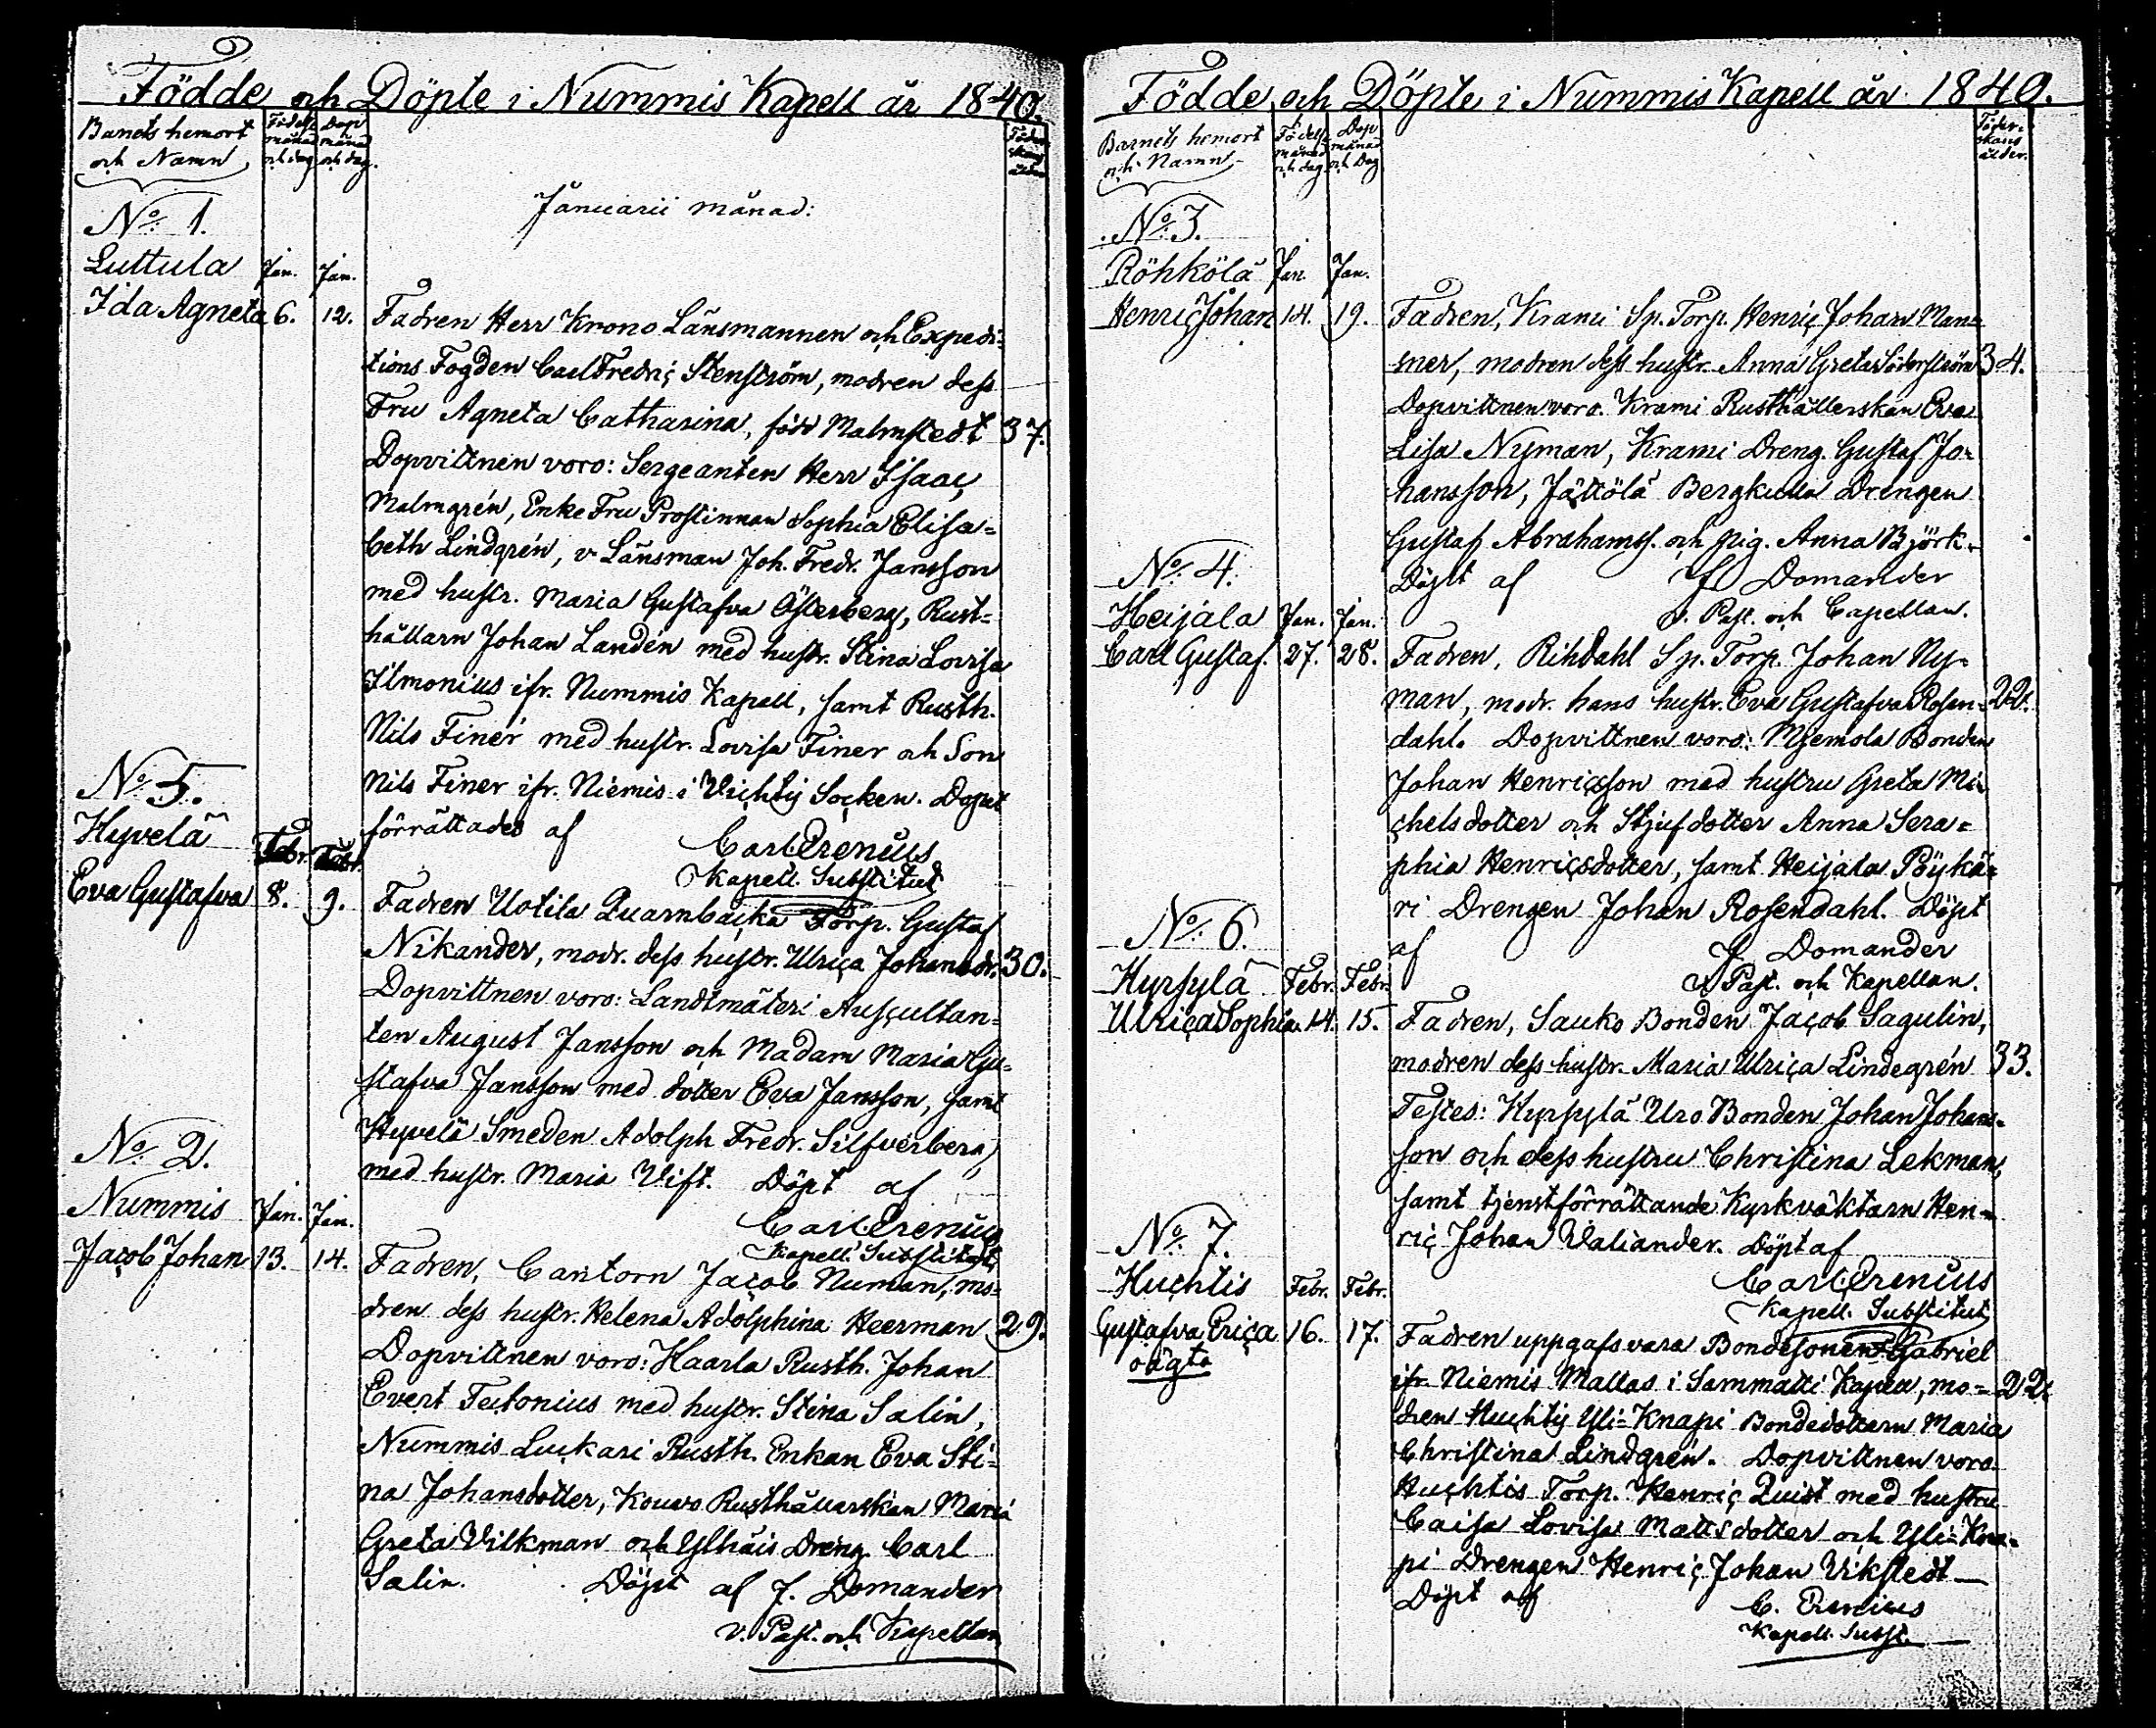 Födde och Döpte i Nummis Kapell år 1840.
Barnets hemort och Namn
Födelse månad och dag
Dop månad och dag.
Föderskans ålder
Januarii månad:
No 1.
Luttula Jan. Jan.
Ida Agneta 6. 12. Fadren Herr Krono Länsmannen och Expedi-
tions Fogden Carl Fredric Stenström, modren dess
Fru Agneta Catharina, född Malmstedt 37.
Dopvittnen voro: Sergeanten Herr Isaac
Malmgrén, Enke Fru Prostinnan Sophia Elisa=
beth Lindgrén, v. Länsman Joh. Fredr. Jansson
med hustr. Maria Gustafva Österberg, Rust=
hållarn Johan Landén med hustr. Stina Lovisa
Ilmonius ifr. Nummis Kapell, samt Rusth.
Nils Finér med hustr. Lovisa Finer och Son
Nils Finer ifr. Niemis i Vichtis Socken. Dopet
förrättades af Carl Erenius
Kapell. Substitut
No 5.
Hyvelä Febr. Febr.
Eva Gustafva 8. 9. Fadren Uotila Quarnbacka Torp. Gustaf
Nikander, modr. dess hustr. Ulrica Johansdr. 30.
Dopvittnen voro: Landtmäteri Auscultan=
ten August Jansson och Madam Maria Gu=
stafva Jansson med dotter Eva Jansson, samt
Hyvelä Smeden Adolph Fredr. Silfverberg
med hustr. Maria Vift. Döpt af
Carl Erenius
Kapell. Substitut
No 2.
Nummis Jan. Jan.
Jacob Johan 13. 14. Fadren, Cantorn Jacob Numan, mo=
dren dess hustr. Helena Adolphina Heerman 29.
Dopvittnen voro: Haarla Rusth. Johan
Evert Teutonius med hustr. Stina Salin,
Nummis Luckari Rusth. Enkan Eva Sti=
na Johansdotter, Kouvo Rusthållarskan Maria
Greta Vilkman och Ylhäis Dreng Carl
Salin. Döpt af J. Domander
v. Past. och Kapellan
Födde och Döpte i Nummis Kapell år 1840.
Barnets hemort och Namn
Födelse månad och dag
Dop månad och Dag
Föderskans ålder.
No 3.
Röhkölä Jan. Jan.
Henric Johan 14. 19. Fadren, Krami Sp. Torp. Henric Johan Man=
ner, modren dess hustr. Anna Greta Söderström 34.
Dopvittnen voro. Krami Rusthållerskan Eva
Lisa Nyman, Krami Dreng. Gustaf Jo=
hansson, Jättölä Bergkulla Drengen
Gustaf Abrahamss. och Pig. Anna Björk.
Döpt af J. Domander
v. Past. och Capellan.
No 4.
Heijala Jan. Jan.
Carl Gustaf. 27. 28. Fadren, Rihdahl Sp. Torp. Johan Ny=
man, modr. hans hustr. Eva Gustafva Rosen= 22.
dahl. Dopvittnen voro: Mjemola Bonden
Johan Henricsson med hustru Greta Mi=
chelsdotter och Stjufdotter Anna Sera=
phia Henricsdotter, samt Heijala Pöykä=
ri Drengen Johan Rosendahl. Döpt
af J. Domander
v. Past. och Kapellan.
No 6.
Hyrsylä Febr. Febr.
Ulrica Sophia. 14. 15. Fadren, Sauko Bonden Jacob Sagulin,
modren dess hustr. Maria Ulrica Lindegrén 33.
Testes: Hyrsylä Uro Bonden Johan Johans=
son och dess hustru Christina Lekman,
samt tjenstförrättande Kyrkväktarn Hen=
ric Johan Valiander. Döpt af
Carl Erenius
Kapell. Substitut
No 7.
Huchtis Febr. Febr.
Gustafva Erica 16. 17. Fadren uppgafs vara Bondesonen Gabriel
oägta
ifr. Niemis Mattas i Sammatti Kapell, mo= 22.
dren Huchtis Yli=Knapi Bondedottern Maria
Christina Lindgrén. Dopvittnen voro
Huchtis Torp. Henric Quist med hustru
Caisa Lovisa Mattsdotter och Yli=Kna=
pi Drengen Henric Johan Vikstedt
Döpt af C. Erenius
Kapell. Subst.